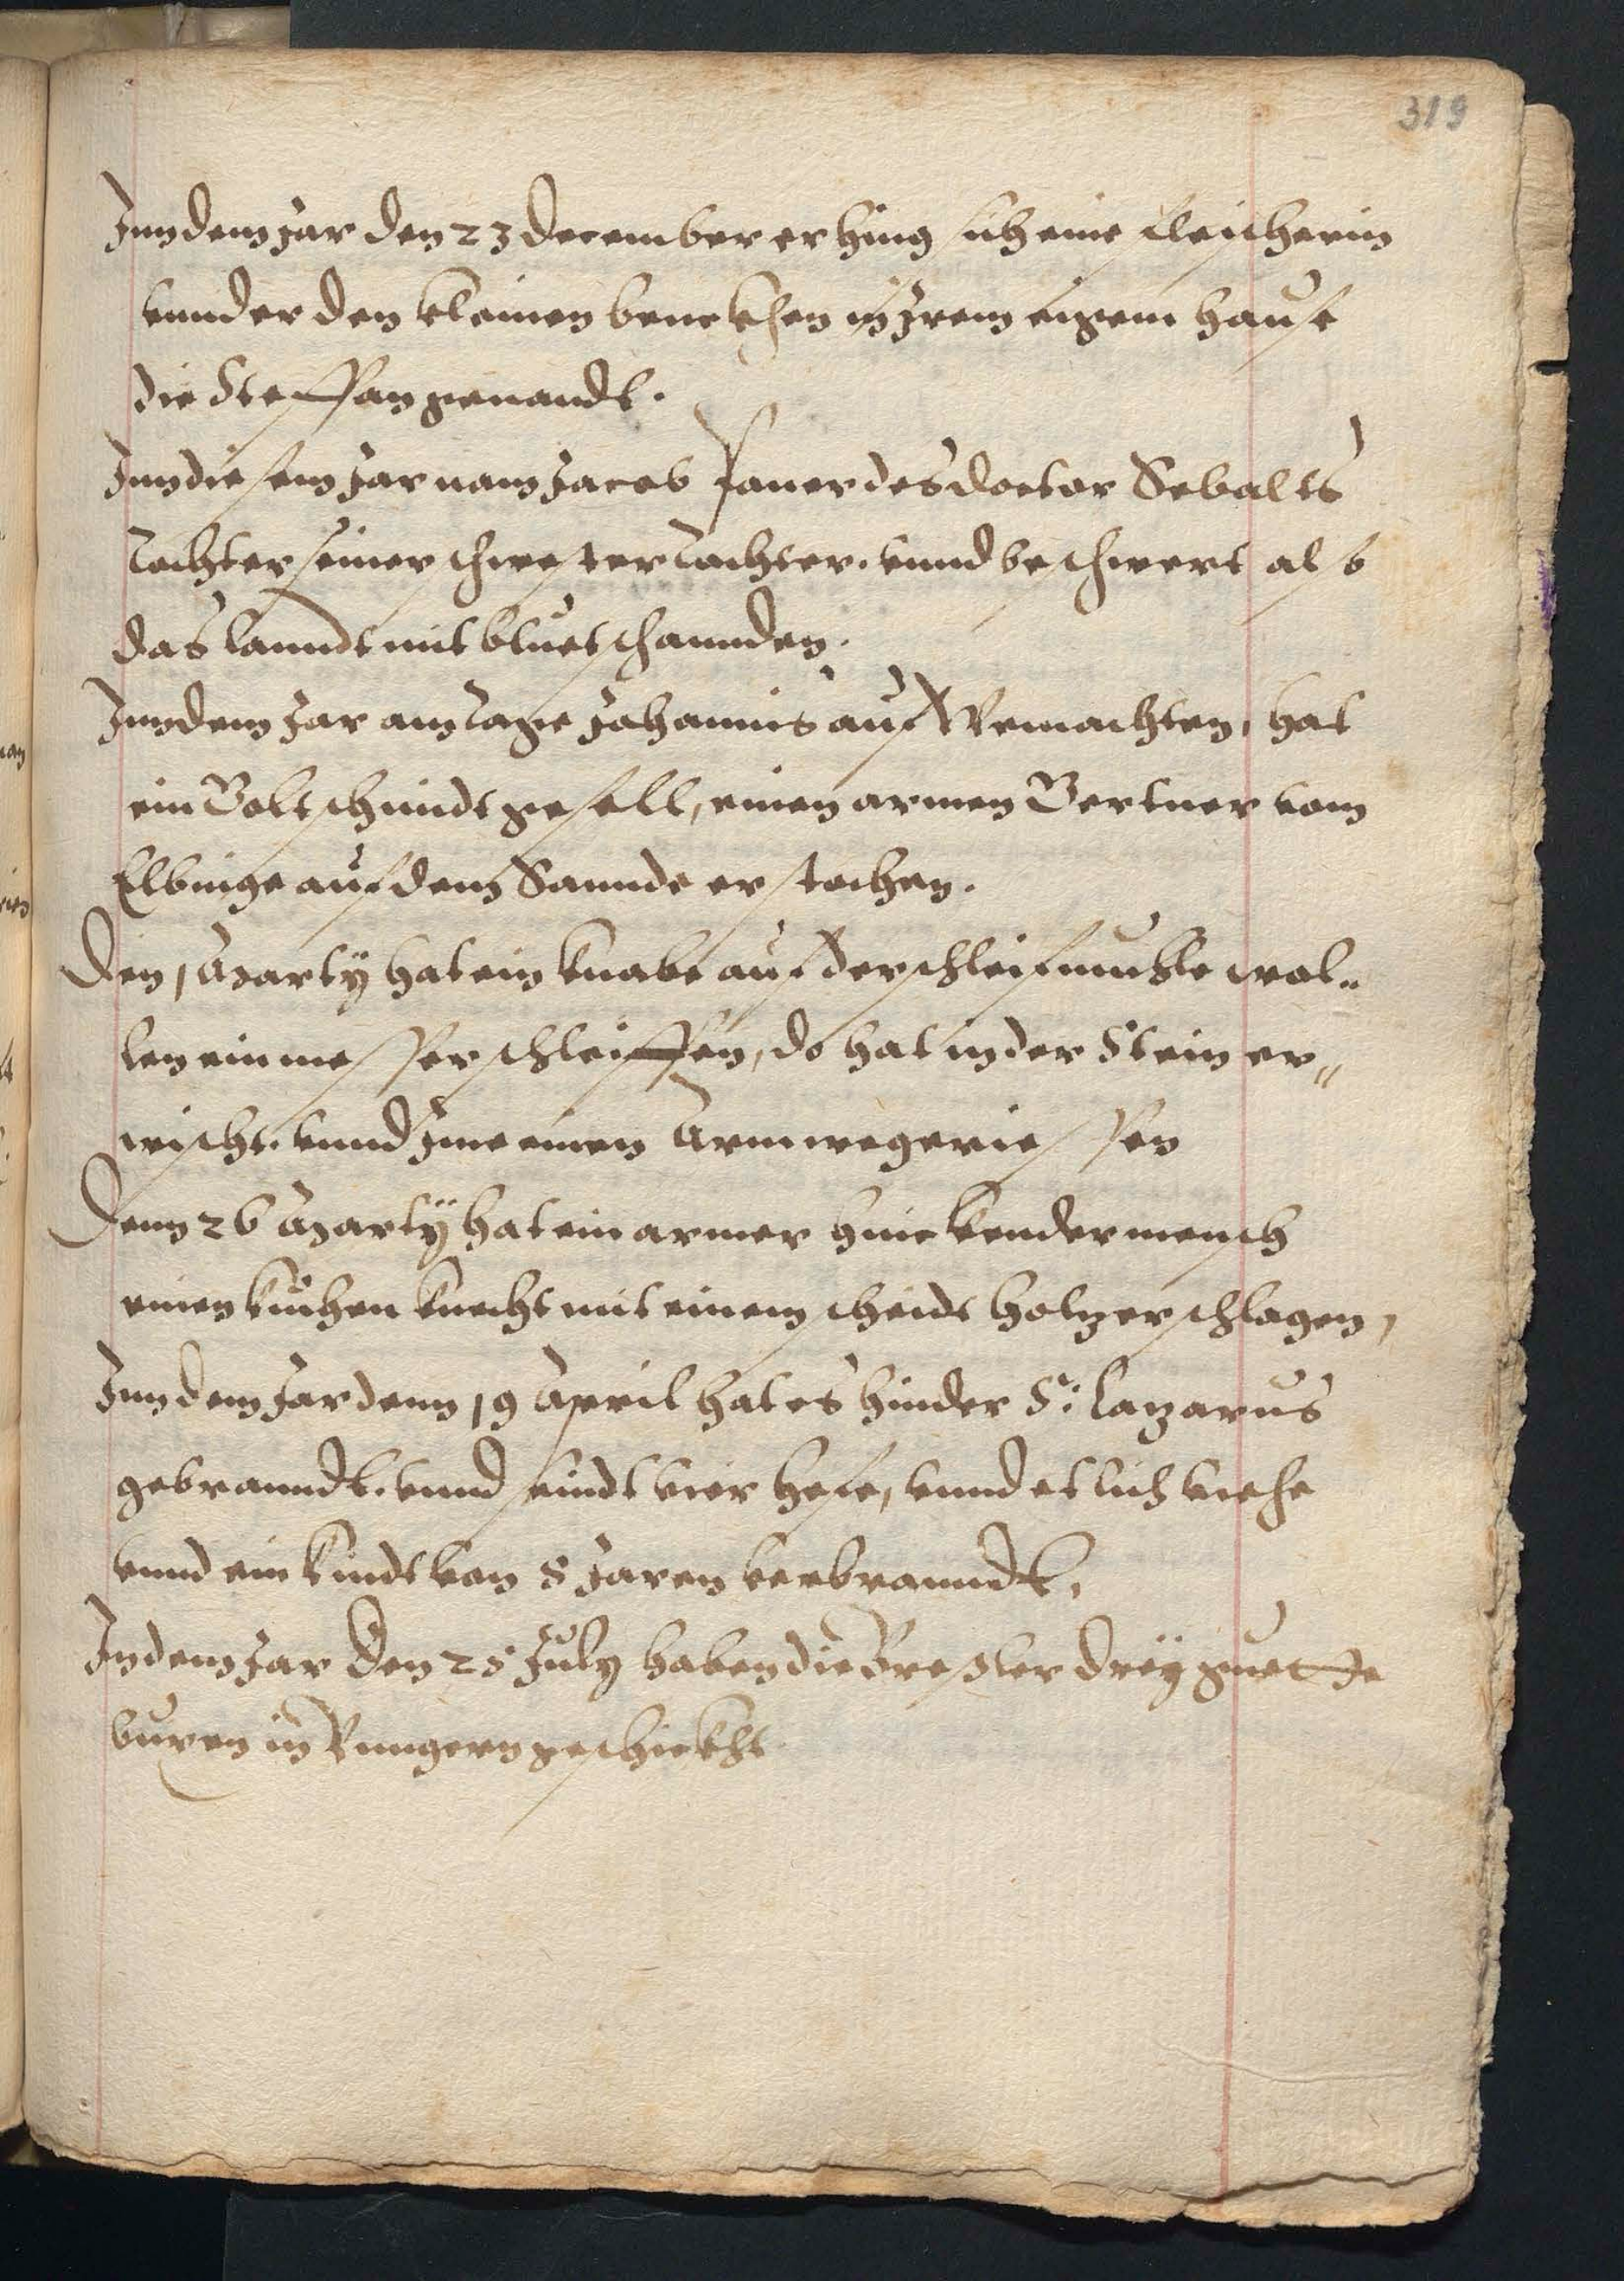 319
Jnn dem Jar den 23 December erhing sich eine fleischerin
vunder den kleinen benckhen in Jrem eigenn hause
die Steffan genandt.
Jnn diesem Jar nam Jacob sauer des doctor Sebalts
tochter seiner schwester tochter. vnnd beschwert als
das lanndt mit bluetschannden.
Jnn dem Jar am tage Johannis auf Weinachten, hat
ein Goltschmidt gesell, einen armen Gertner vom
Elbinge auf dem Sannde erstochen.
Den 1 Marty hat ein knabe auf der schleifmuhle wol„
len ein messer schleiffen, do hat in der Stein er„
wischt. vnnd Jme einen Arm weg geriessen
Denn 26 Marty hat ein armer hinckender mensch
einen kuchen knecht mit einem scheidt holtz erschlagen,
Jnn dem Jar denn 19 April hat es hinder S: Lazarus
gebranndt. vnnd seindt vier hefe, vnnd etlich viehe
vnnd ein kindt von 8 Jaren verbranndt,
Jn dem Jar Den 25 July haben die Breßler dreÿ
buren in Vnngern geschickht